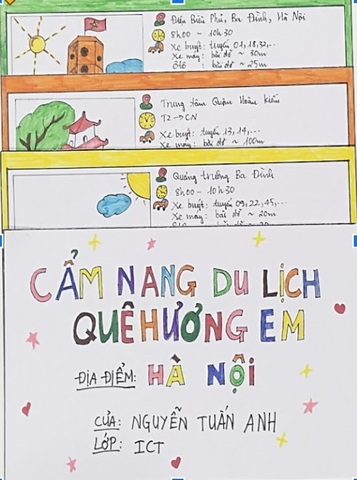 Điện Biên Phủ, Ba Đình, Hà Nội
8h00 ~ 10h30
Xe buýt: tuyến 01, 18, 32, ...
Xe máy: bãi đỗ ~ 30m
Ôtô: bãi đỗ ~ 25m
Trung tâm Quận Hoàn Kiếm
T2 → CN
Xe buýt: tuyến 13, 14, ...
Xe máy: bãi đỗ ~ 100m
Quảng trường Ba Đình
8h00 - 10h30
Xe buýt: tuyến 09, 22, 45, ...
Xe máy: bãi đỗ ~ 20m
CẨM NANG DU LỊCH
QUÊ HƯƠNG EM
ĐỊA ĐIỂM: HÀ NỘI
CỦA: NGUYỄN TUẤN ANH
LỚP: ICT